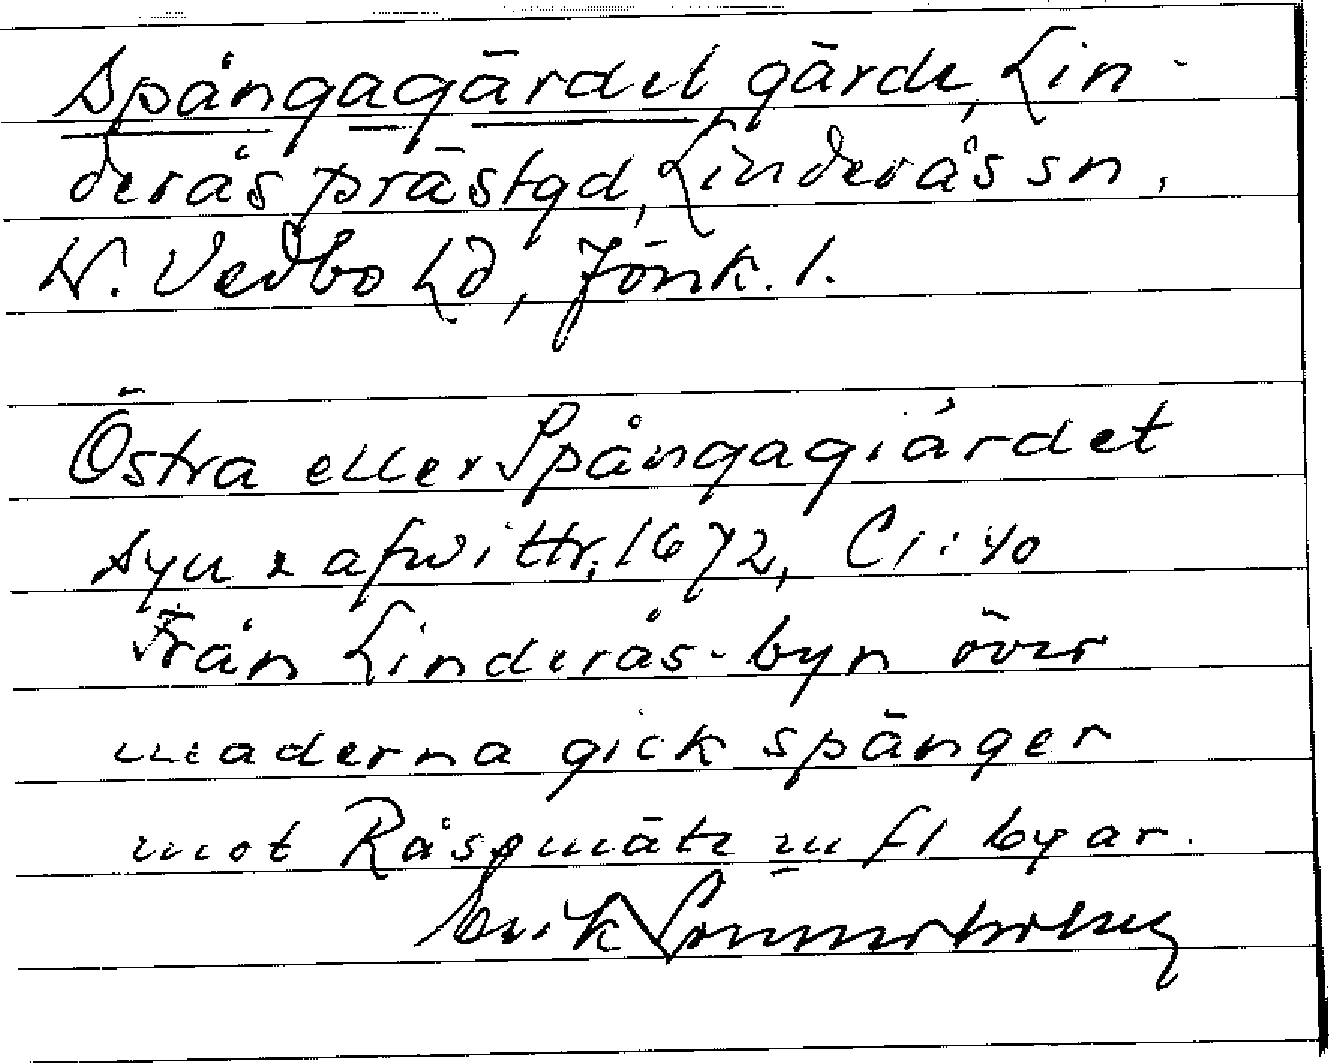 Spångagärdet, gärde, Lin-
derås prästgd, Linderås sn,
N. Vedbo hd, Jönk. l.
Östra eller Spångagiärdet
Syn x afwittr. 1672, C1:40
Från Linderås-byn över
maderna gick spänger
mot m fl byar.
Erik